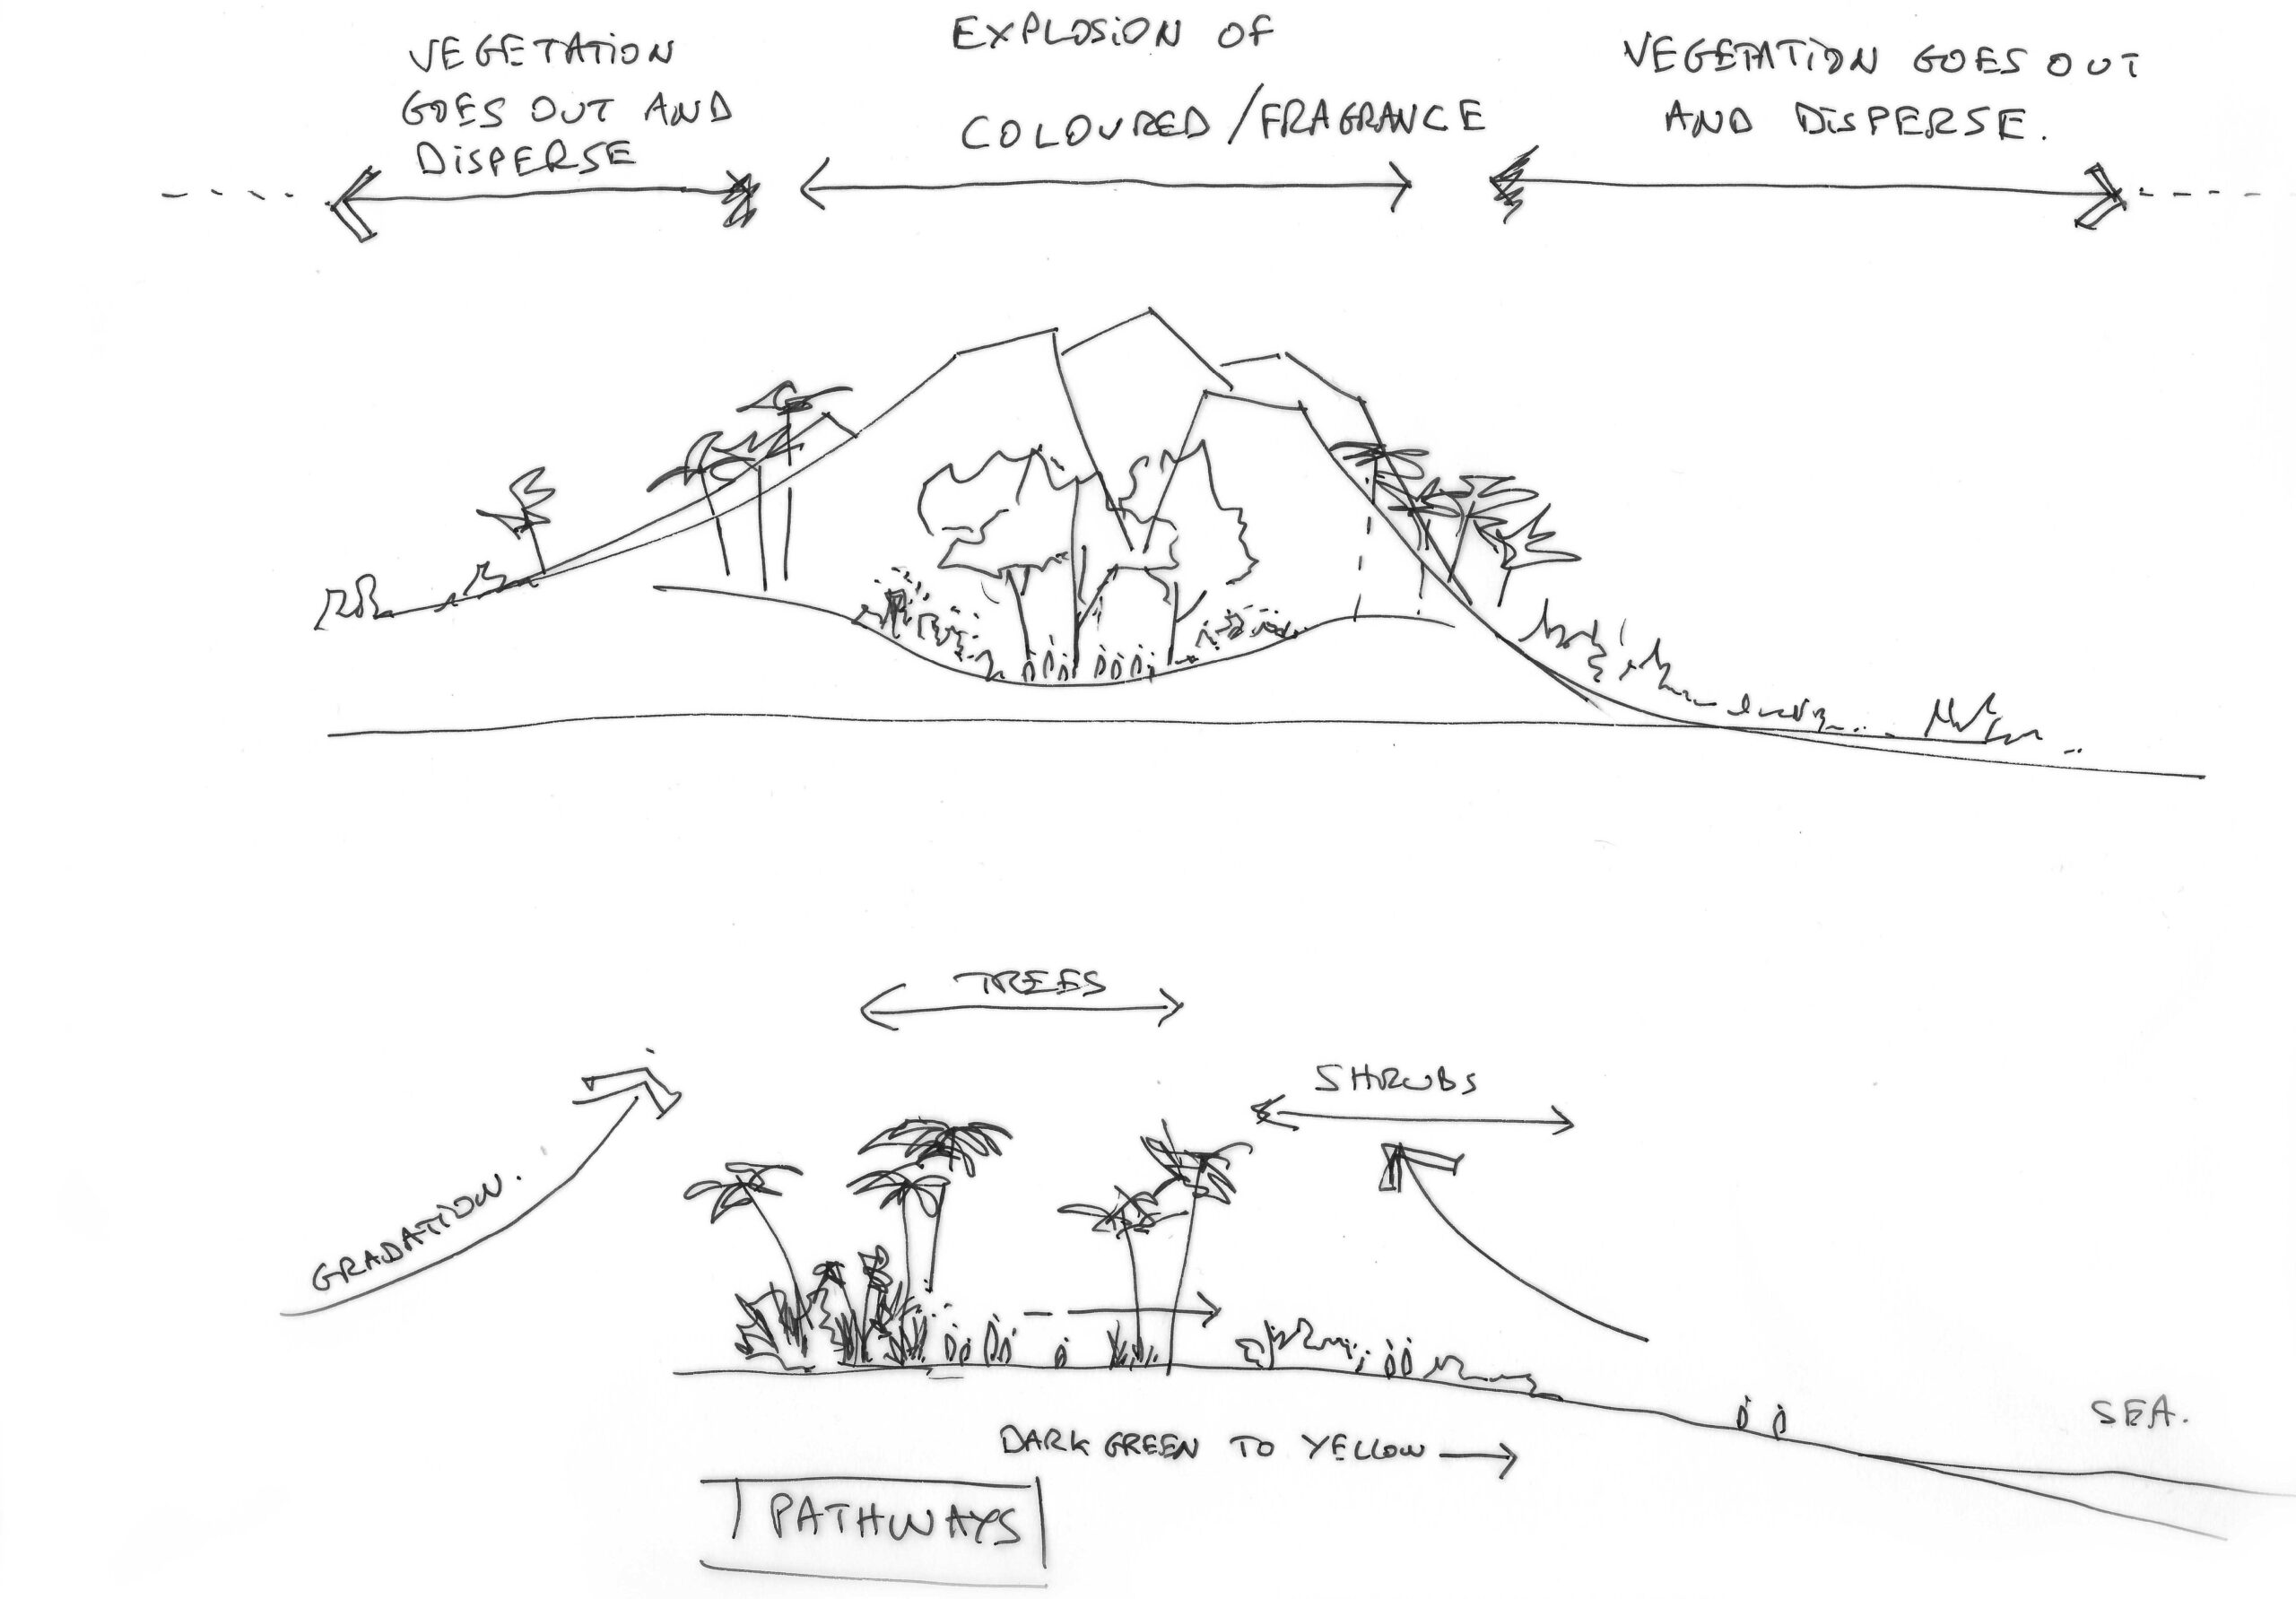 VEGETATION
GOES OUT AND
DISPERSE
EXPLOSION OF
COLOURED/FRAGRANCE
VEGETATION GOES OUT
AND DISPERSE.
TREES
SHRUBS
GRADATION.
SEA.
DARK GREEN TO YELLOW
PATHWAYS